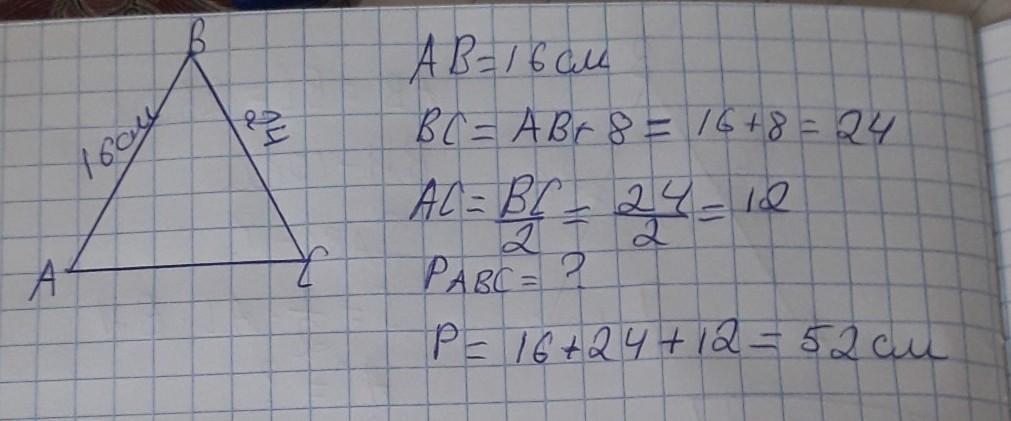 B
16см
24
A
C
AB=16см
BC= AB+ 8 = 16+8 = 24
AC= BC/2 = 24/2 = 12
PABC= ?
P= 16+24+12=52см